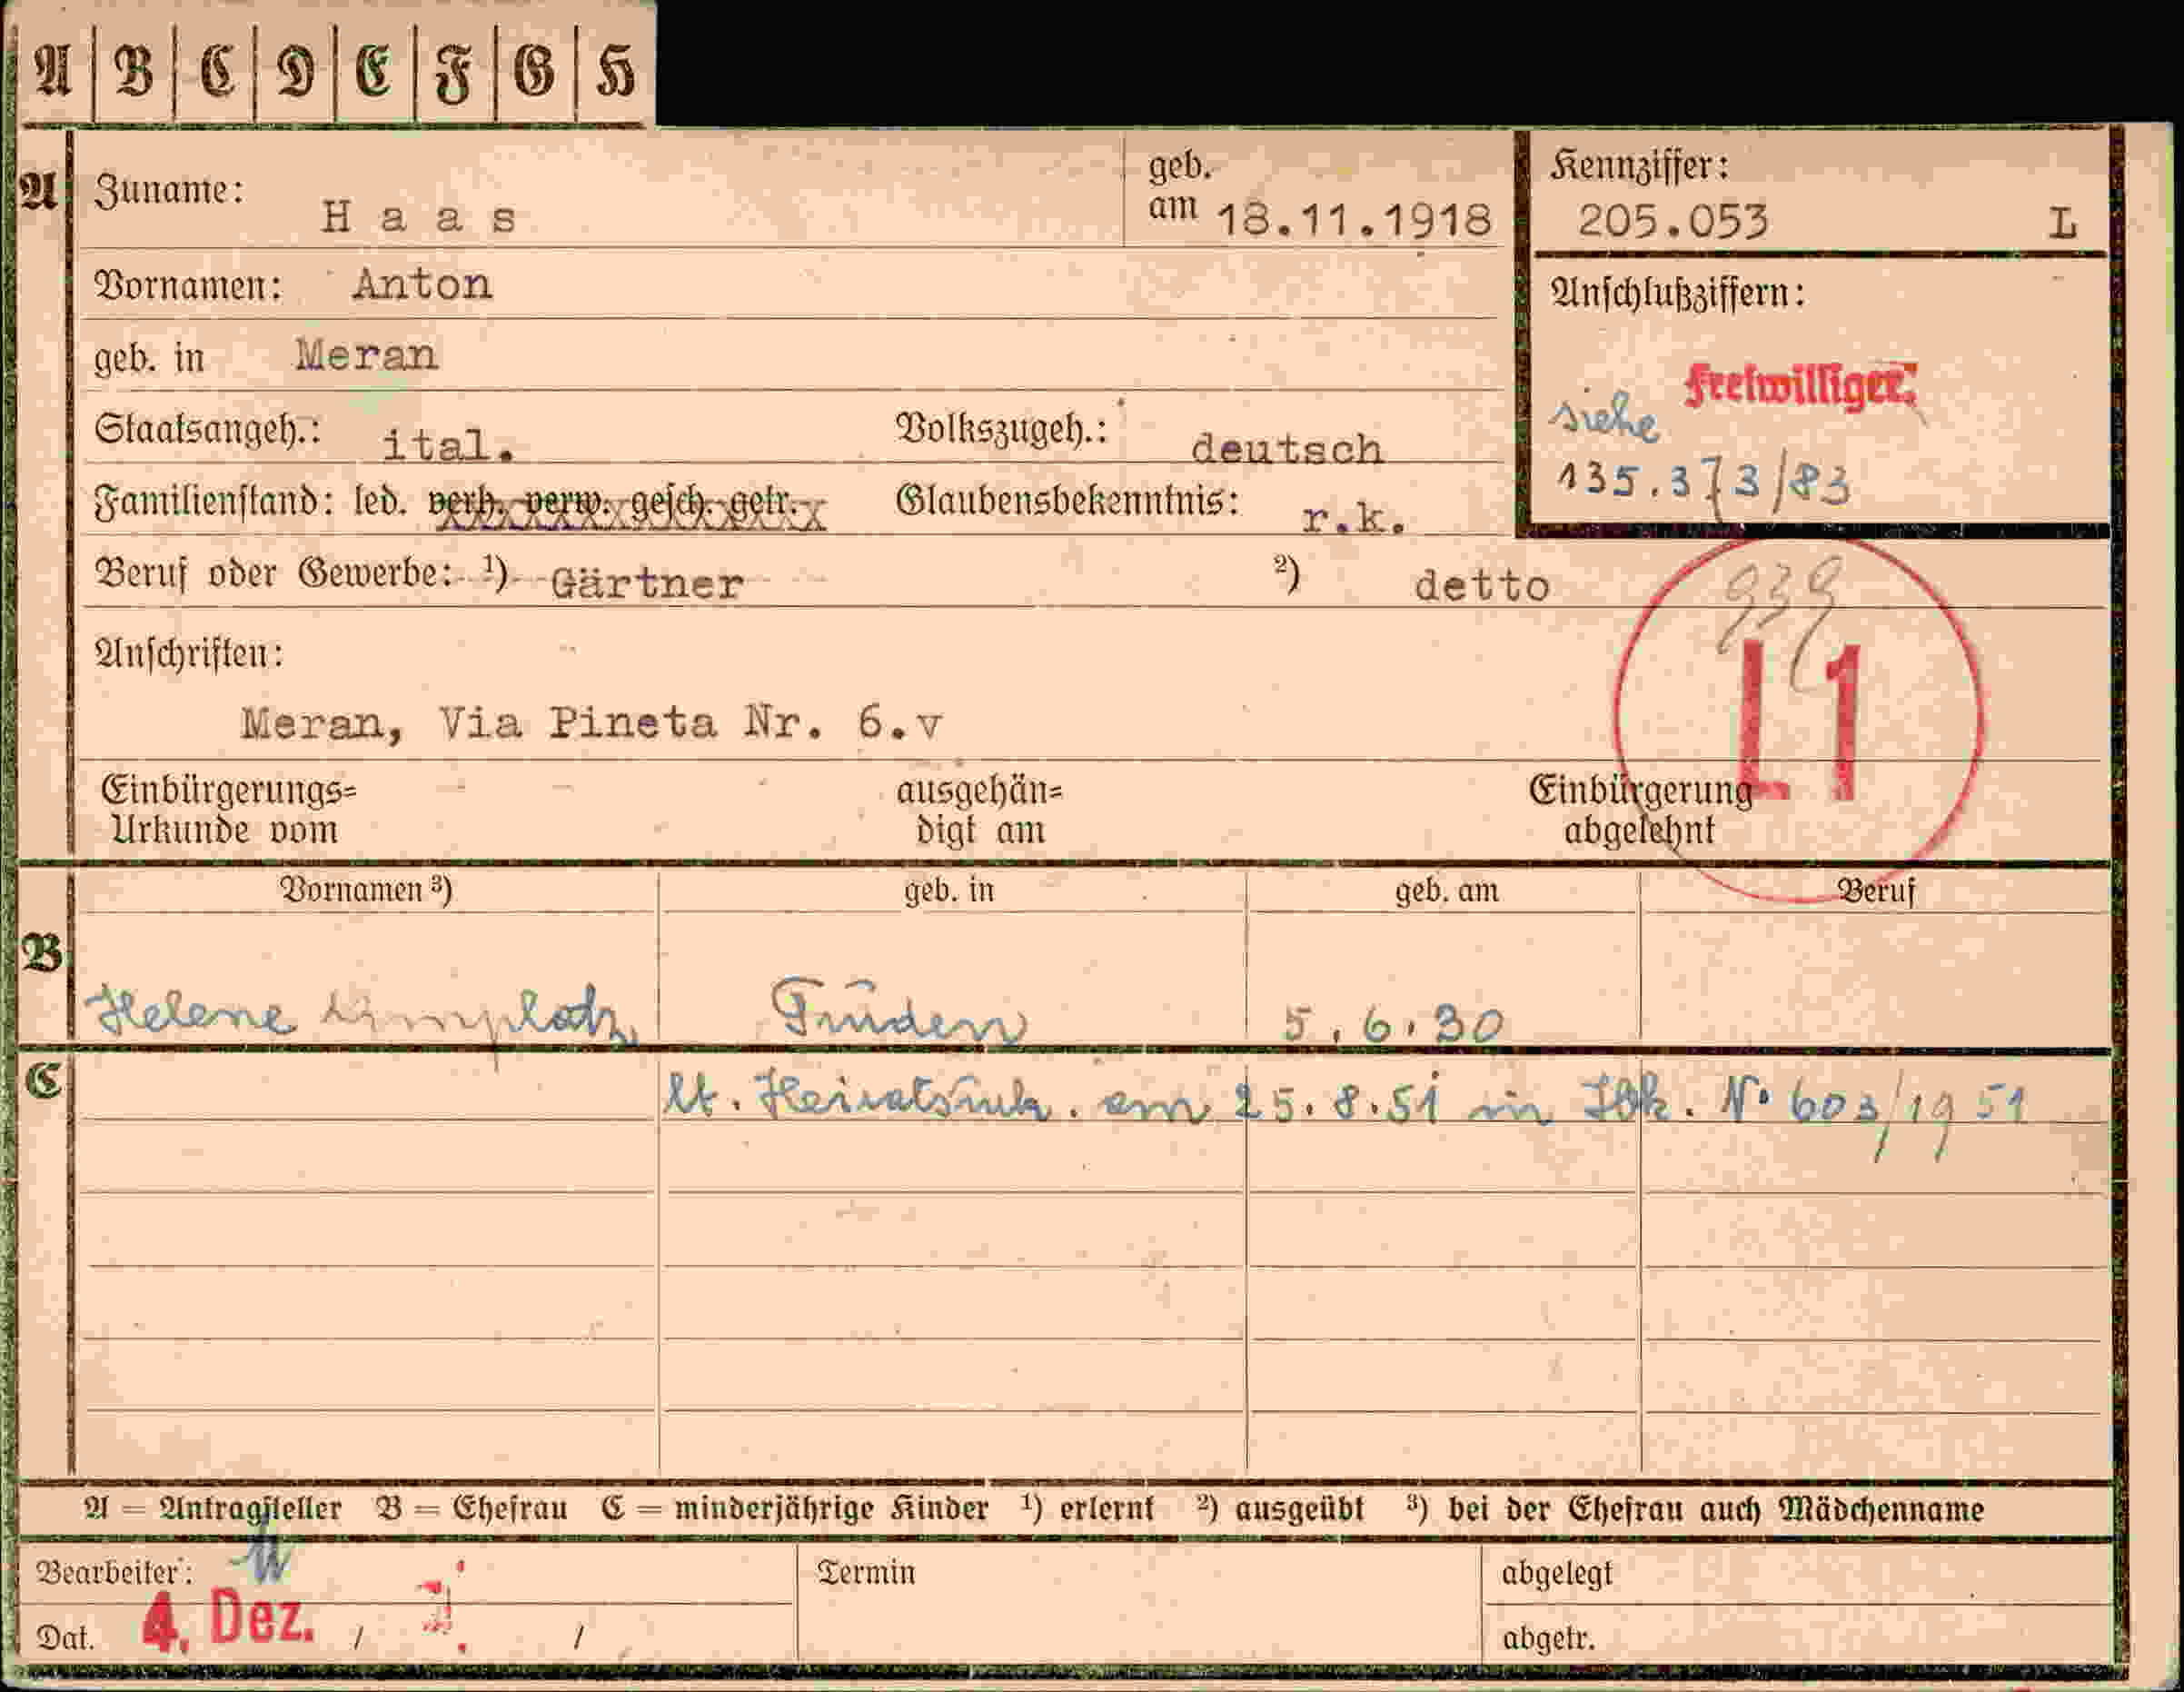 A B C D E F G H
A Zuname: Haas geb. am 18.11.1918
Kennziffer: 205.053 L
Vornamen: Anton
geb. in Meran
Anschlußziffern:
Freiwilliger.
siehe
135.373/83
Staatsangeh.: ital. Volkszugeh.: deutsch
Familienstand: led. verh. verw. gesch. getr. Glaubensbekenntnis: r.k.
Beruf oder Gewerbe: ¹) Gärtner ²) detto
939
L1
Anschriften:
Meran, Via Pineta Nr. 6.v
Einbürgerungs= ausgehän= Einbürgerung
Urkunde vom digt am abgelehnt
B Vornamen ³) geb. in geb. am Beruf
Helene 5.6.30
C lt. Heiratsurk. am 25.8.51 in Ibk. No 603/1951
A = Antragsteller B = Ehefrau C = minderjährige Kinder ¹) erlernt ²) ausgeübt ³) bei der Ehefrau auch Mädchenname
Bearbeiter: Termin abgelegt
Dat. 4. Dez. / / abgetr.